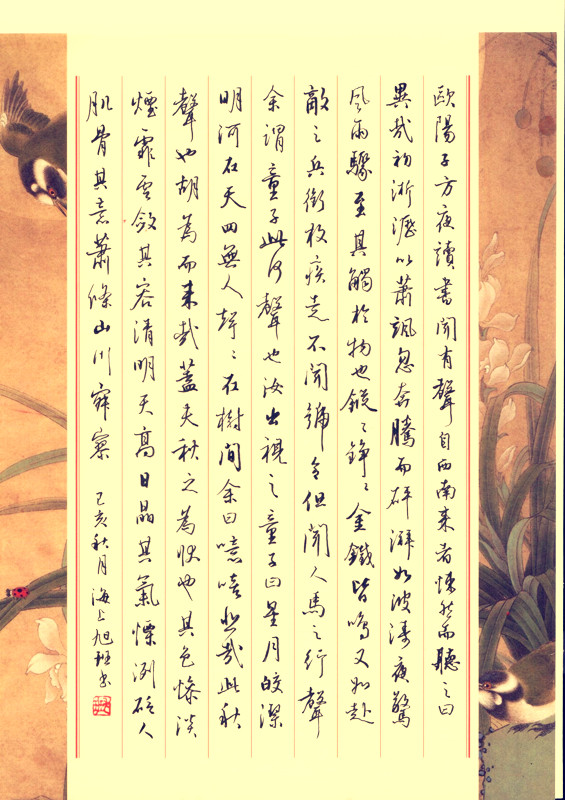 歐陽子方夜讀書聞有聲自西南來者悚然而聽之曰
異哉初淅瀝以蕭颯忽奔騰而砰湃如波濤夜驚
風雨驟至其觸於物也鏦〻錚〻金鐵皆鳴又如赴
敵之兵銜枚疾走不聞號令但聞人馬之行聲
余謂童子此何聲也汝出視之童子曰星月皎潔
明河在天四無人聲〻在樹間余曰噫嘻悲哉此秋
聲也胡為而來哉蓋夫秋之為狀也其色慘淡
煙霏雲斂其容清明天高日晶其氣慄冽砭人
肌骨其意蕭條山川寂寥 己亥秋月海上旭